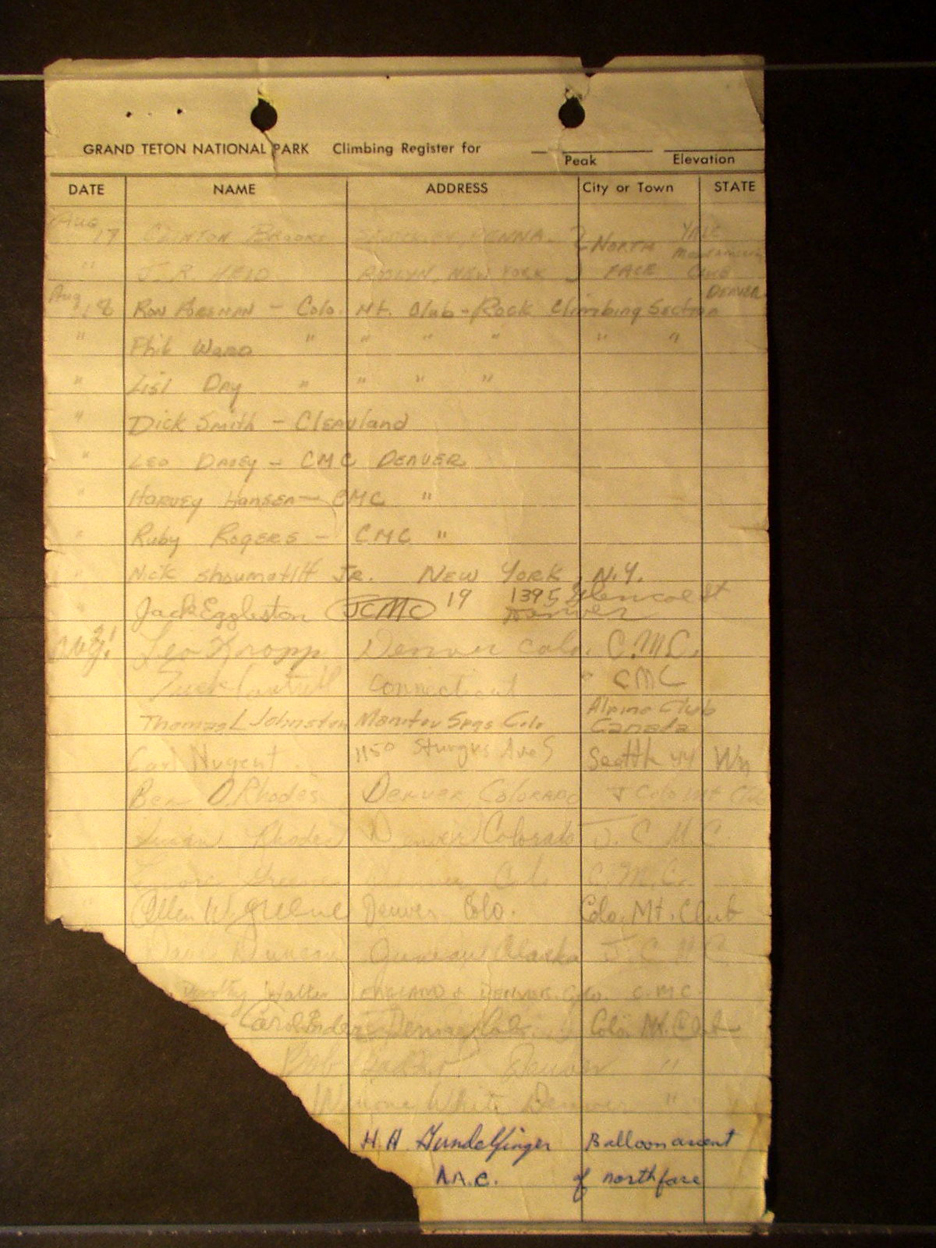 GRAND TETON NATIONAL PARK Climbing Register for
Peak Elevation
DATE NAME ADDRESS City or Town STATE
Aug 17 CLINTON BROOKS PENNA. } NORTH YALE
" J. R. REID ROSLYN, NEW YORK } FACE CLUB
Aug 18 RON - Colo. Mt. Club - Rock Climbing Section DENVER
" Phil Ward " " " " " "
" Day " " " "
" Dick Smith - Cleavland
" LEO - CMC DENVER
" HARVEY HANSEN - CMC "
" Ruby Rogers - CMC "
" Nick Shoumatoff Jr. NEW YORK, N.Y.
Jack Eggleston JCMC 19 1395 Glencoe St
Denver
Aug. 21 Leo Knopp Denver Colo. C.M.C.
Connecticut " CMC
Thomas L Johnston Manitou Spgs Colo Alpine Club
Canada
Carl Nugent. 1150 Sturgus Ave S Seattle 44 Wn
Ben D. Rhodes DENVER COLORADO Colo Mt Club
Susan Rhodes Denver Colorado J. C M C
Greene Colo. C. M. C.
Allen W. Greene Denver Colo. Colo. Mt. Club
Duncan Alaska J. C M C
Walker ENGLAND & DENVER. Colo. C.M.C.
Carol Denver, Colo. Colo. Mt. Club
Bob Denver "
White Denver "
H. A. Gundelfinger Balloon ascent
A.A.C. of north face